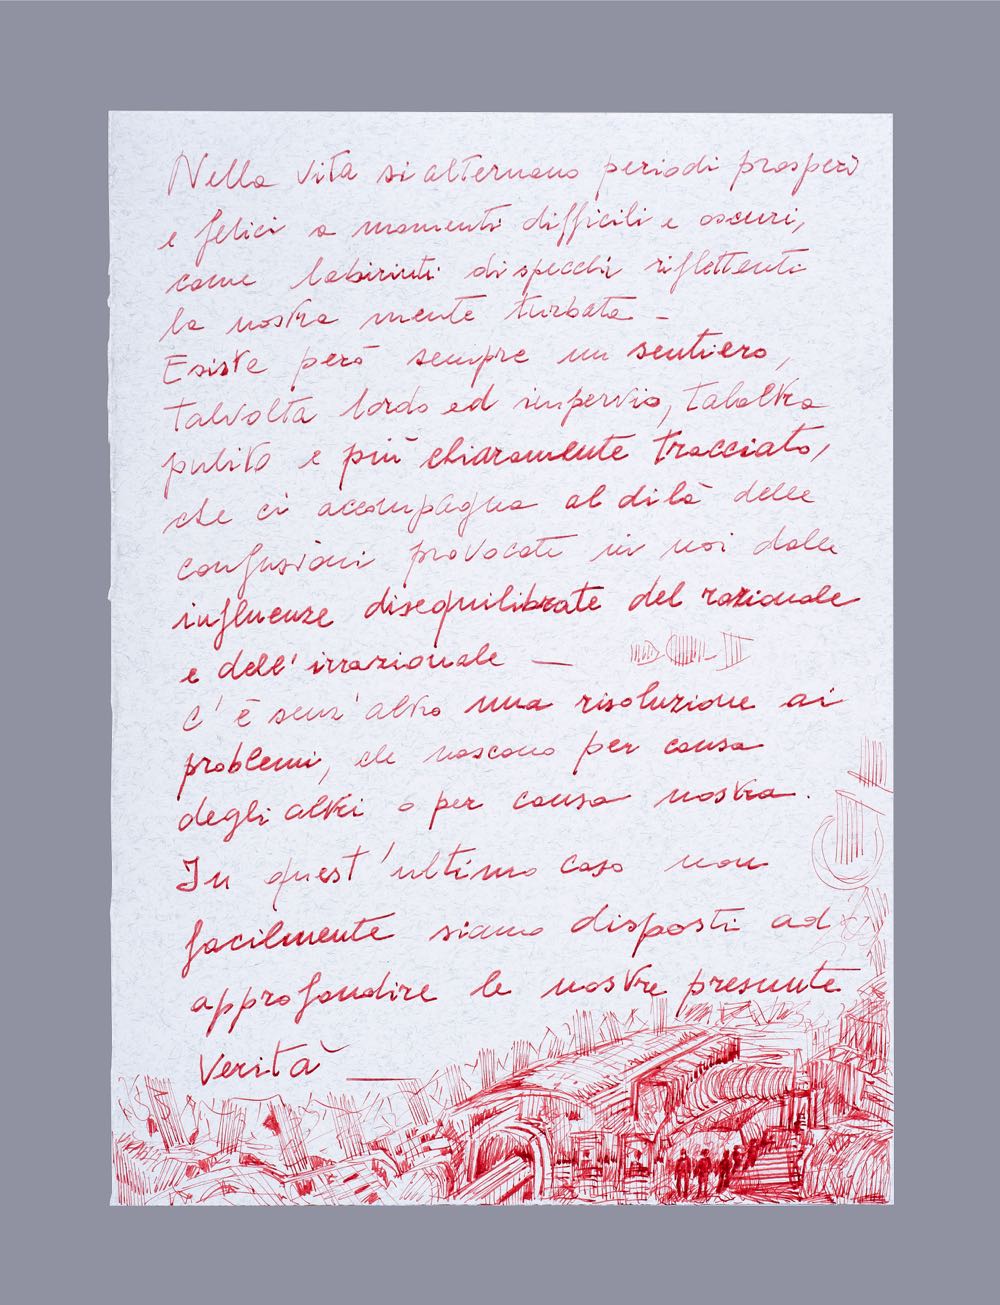 Nella vita si alternano periodi prosperi
e felici a momenti difficili e oscuri,
come labirinti di specchi riflettenti
la nostra mente turbata –
Esiste però sempre un sentiero,
talvolta lordo ed impervio, talaltra
pulito e più chiaramente tracciato,
che ci accompagna al di là delle
confusioni provocate in noi dalle
influenze disequilibrate del razionale
e dell'irrazionale —
C'è senz'altro una risoluzione ai
problemi, che nascono per causa
degli altri o per causa nostra.
In quest'ultimo caso non
facilmente siamo disposti ad
approfondire le nostre presunte
Verità —